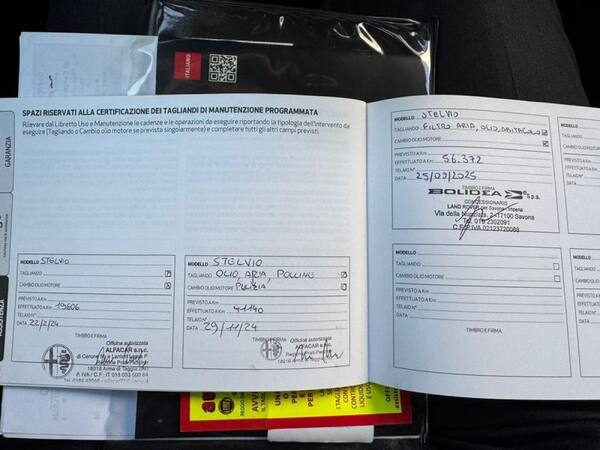 ITALIANO
SPAZI RISERVATI ALLA CERTIFICAZIONE DEI TAGLIANDI DI MANUTENZIONE PROGRAMMATA
Rilevare dal Libretto Uso e Manutenzione le cadenze e le operazioni da eseguire riportando la tipologia dell'intervento da
eseguire (Tagliando o Cambio olio motore se prevista singolarmente) e completare tutti gli altri campi previsti.
GARANZIA
ASSISTENZA
MODELLO STELVIO
TAGLIANDO
CAMBIO OLIO MOTORE
PREVISTO A Km
EFFETTUATO A Km 19606
TELAIO N°
DATA 22/2/24
TIMBRO E FIRMA
Officina autorizzata
ALFACAR s.n.c.
18018 Arma di Taggia (IM)
MODELLO STELVIO
TAGLIANDO OLIO, ARIA, POLLINE
CAMBIO OLIO MOTORE PULIZIA
PREVISTO A Km
EFFETTUATO A Km 41140
TELAIO N°
DATA 29/11/24
TIMBRO E FIRMA
Officina autorizzata
ALFACAR s.n.c.
MODELLO STELVIO
TAGLIANDO FILTRO ARIA, OLIO, ABITACOLO
CAMBIO OLIO MOTORE
PREVISTO A Km
EFFETTUATO A Km 56.372
TELAIO N°
DATA 25/09/2025
TIMBRO E FIRMA
BOLIDEA s.p.a.
CONCESSIONARIO
LAND ROVER per Savona / Imperia
Via della 2-17100 Savona
Tel. 019 2302091
C.F. P.IVA 02123720068
MODELLO
TAGLIANDO
CAMBIO OLIO MOTORE
PREVISTO A Km
EFFETTUATO A Km
TELAIO N°
DATA
TIMBRO E FIRMA